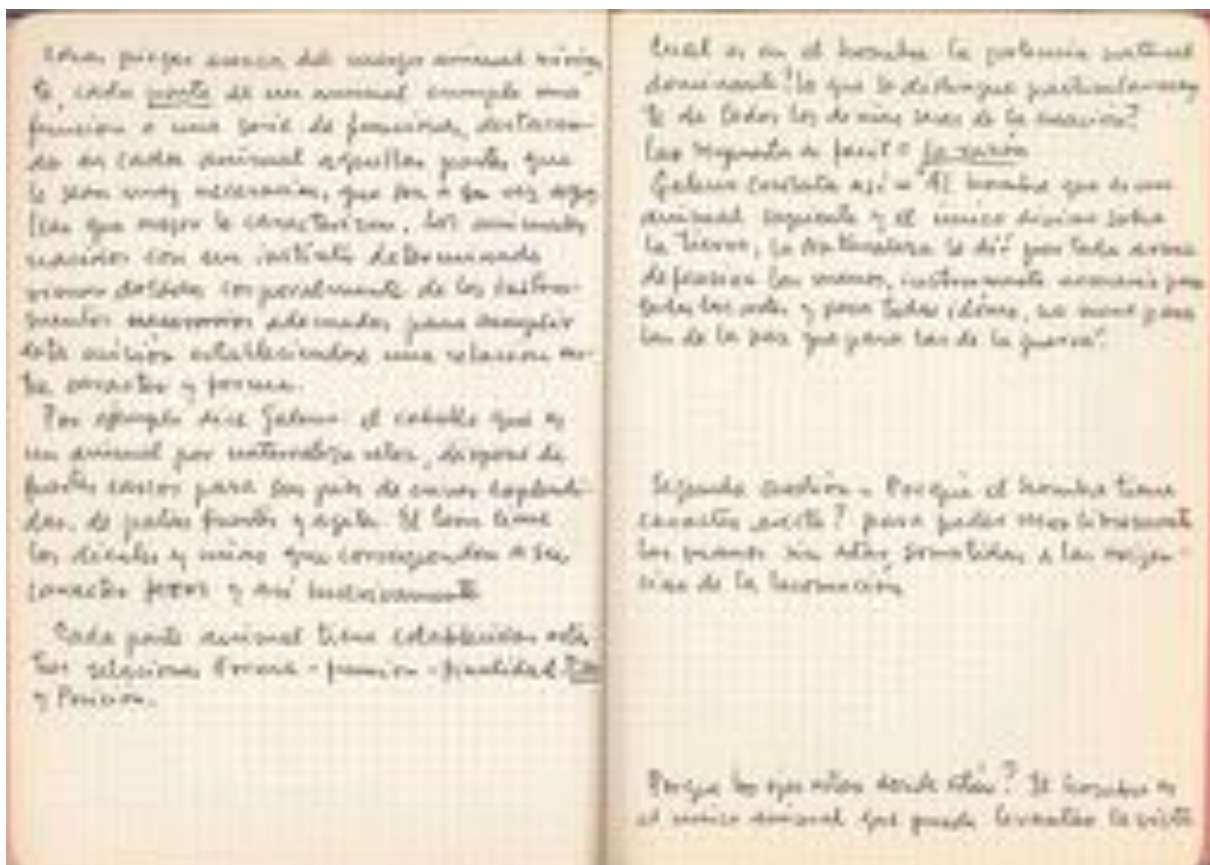 cada parte de un animal cumple una
función o una serie de funciones, destacan-
do en cada animal aquellas partes que
le son muy necesarias, que son a su vez
las que mejor le caracterizan. Los animales
nacidos con un instinto determinado
vienen dotados corporalmente de los instru-
mentos necesarios adecuados para cumplir
esta misión estableciendose una relacion en-
tre caracter y forma.
Por ejemplo dice Galeno el caballo que es
un animal por naturaleza veloz, dispone de
fuertes cascos para sus pies
de patas fuertes y El leon tiene
los dientes y que corresponden a su
caracter feroz y así sucesivamente
Cada parte animal tiene establecidas estas
tres relaciones Forma - funcion - finalidad
y Posicion.
Cual es en el hombre la potencia natural
dominante? lo que le distingue particularmen
te de todos los demas seres de la creacion?
La respuesta es facil = la razón
Galeno contesta así = "Al hombre que es un
animal y el único divino sobre
la Tierra, la Naturaleza le dió por toda arma
defensiva las manos, instrumento necesario para
todas las artes y para todas idóneo, no menos para
las de la paz que para las de la guerra".
Segunda cuestión = Porqué el hombre tiene
caracter erecto? para poder usar libremente
las manos sin estar sometidas a las exigen-
cias de la locomoción
Porque los ojos estan donde están? El hombre es
el unico animal que puede levantar la vista